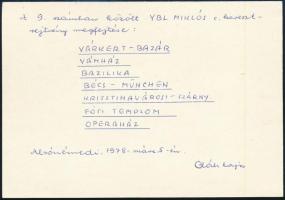 A 9. számban közölt YBL MIKLÓS c. kereszt-
rejtvény megfejtése:
VÁRKERT-BAZÁR
VÁMHÁZ
BAZILIKA
BÉCS-MÜNCHEN
KRISZTINAVÁROSI-SZÁRNY
FÓTI TEMPLOM
OPERAHÁZ
Alsónémedi, 1978. márc. 5-én.